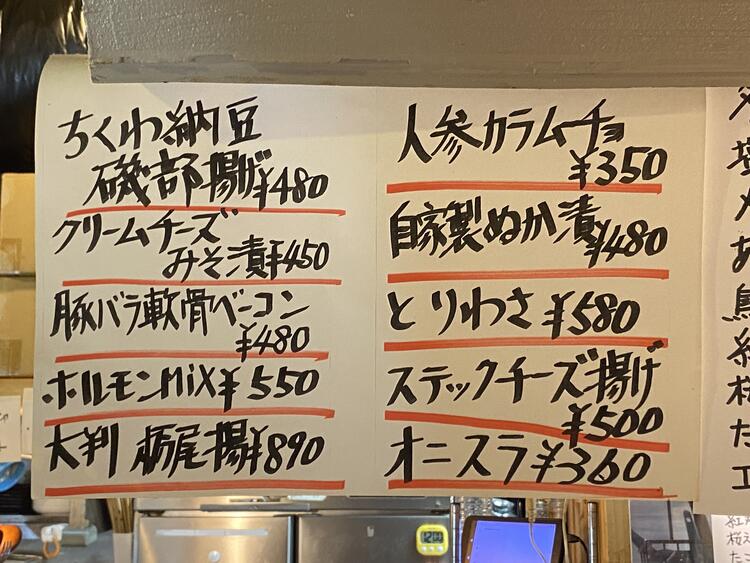 ちくわ納豆
磯部揚げ¥480
クリームチーズ
みそ漬¥450
豚バラ軟骨ベーコン
¥480
ホルモンMiX¥550
大判 栃尾揚¥890
人参カラムーチョ
¥350
自家製ぬか漬
¥480
とりわさ¥580
スティックチーズ揚げ
¥500
オニスラ¥360
12:00